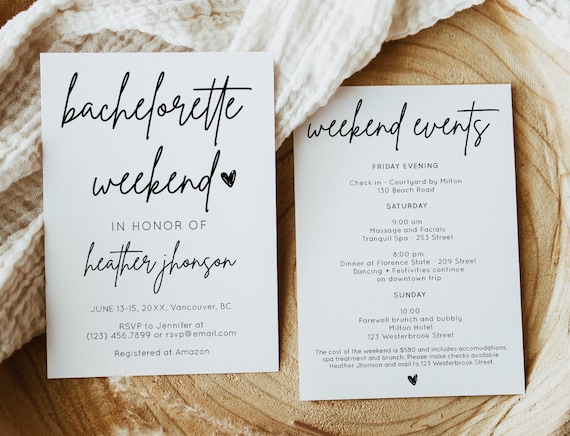 bachelorette
weekend
IN HONOR OF
heather jhonson
JUNE 13-15, 20XX, Vancouver, BC
RSVP to Jennifer at
(123) 456.7899 or rsvp@email.com
Registered at Amazon
weekend events
FRIDAY EVENING
Check in - Courtyard by Milton
130 Beach Road
SATURDAY
9:00 am
Massage and Facials
Tranquil Spa - 253 Street
8:00 pm
Dinner at Florence State - 209 Street
Dancing + Festivities continue
on downtown trip
SUNDAY
10:00
Farewell brunch and bubbly
Milton Hotel
123 Westerbrook Street
The cost of the weekend is $580 and includes accomodations,
spa treatment and brunch. Please make checks available
Heather Jhonson and mail to 123 Westerbrook Street.